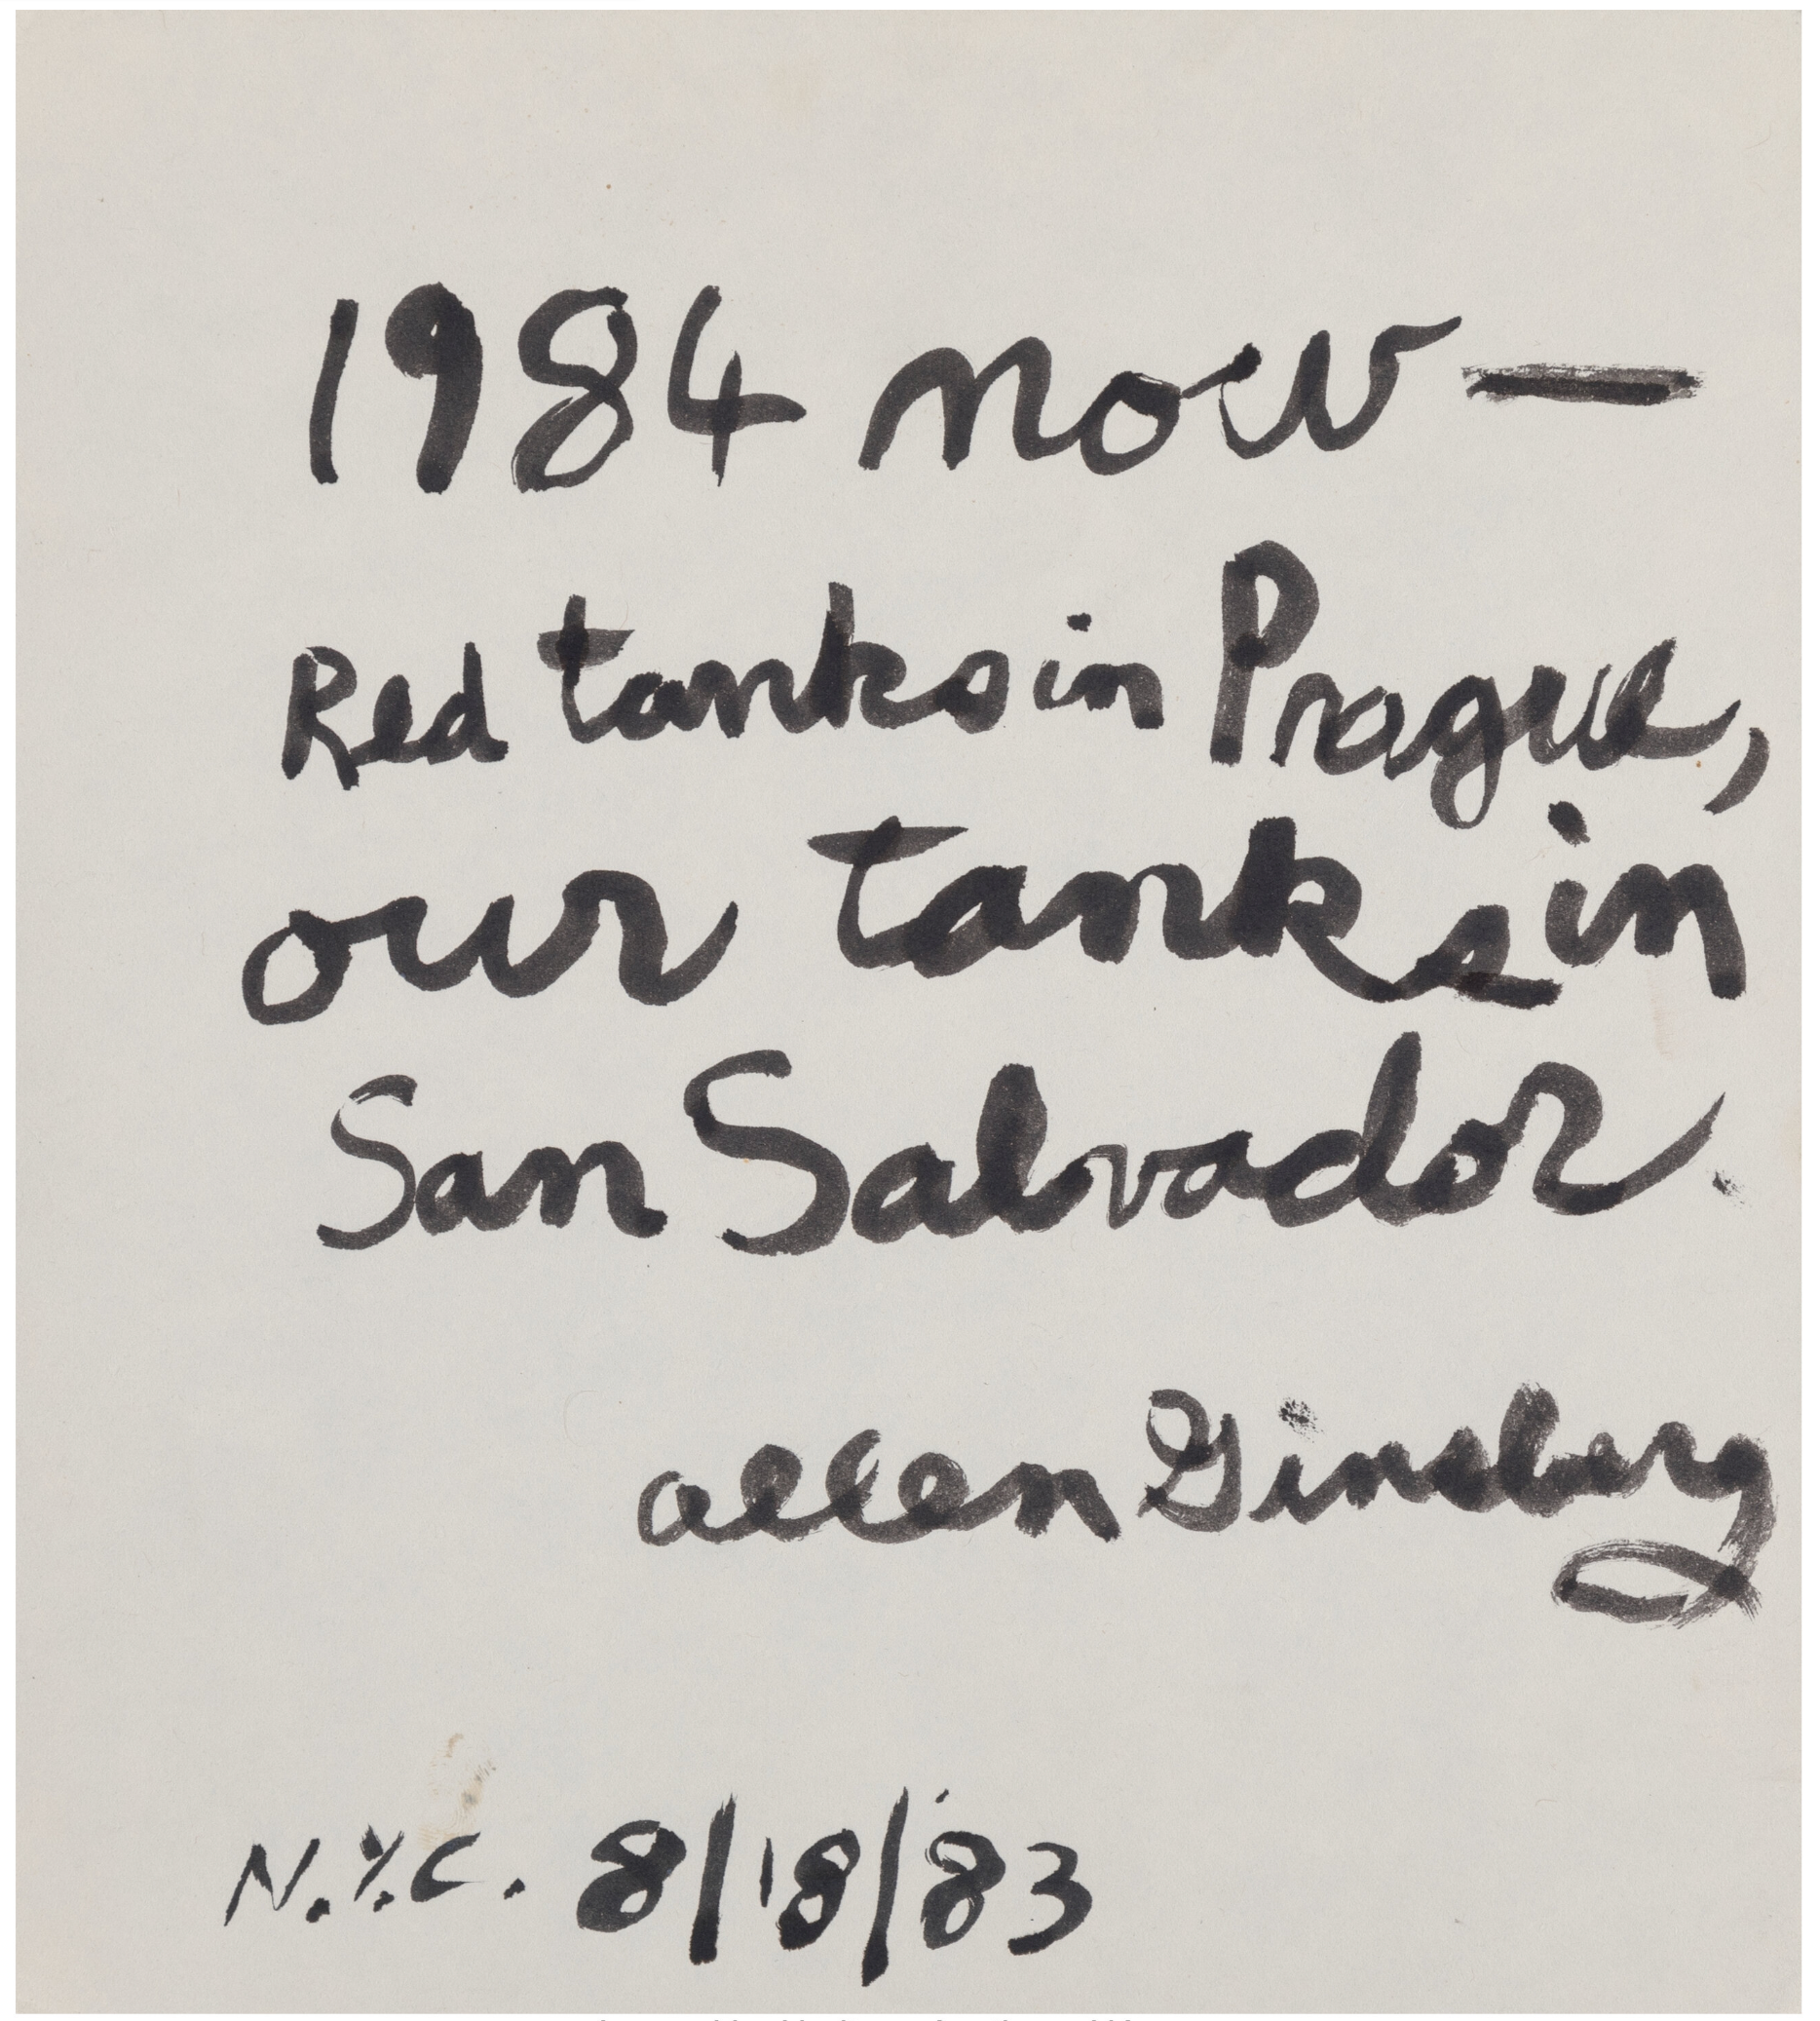 1984 now—
Red tanks in Prague,
our tanks in
San Salvador.
allen Ginsberg
N.Y.C. 8/18/'83